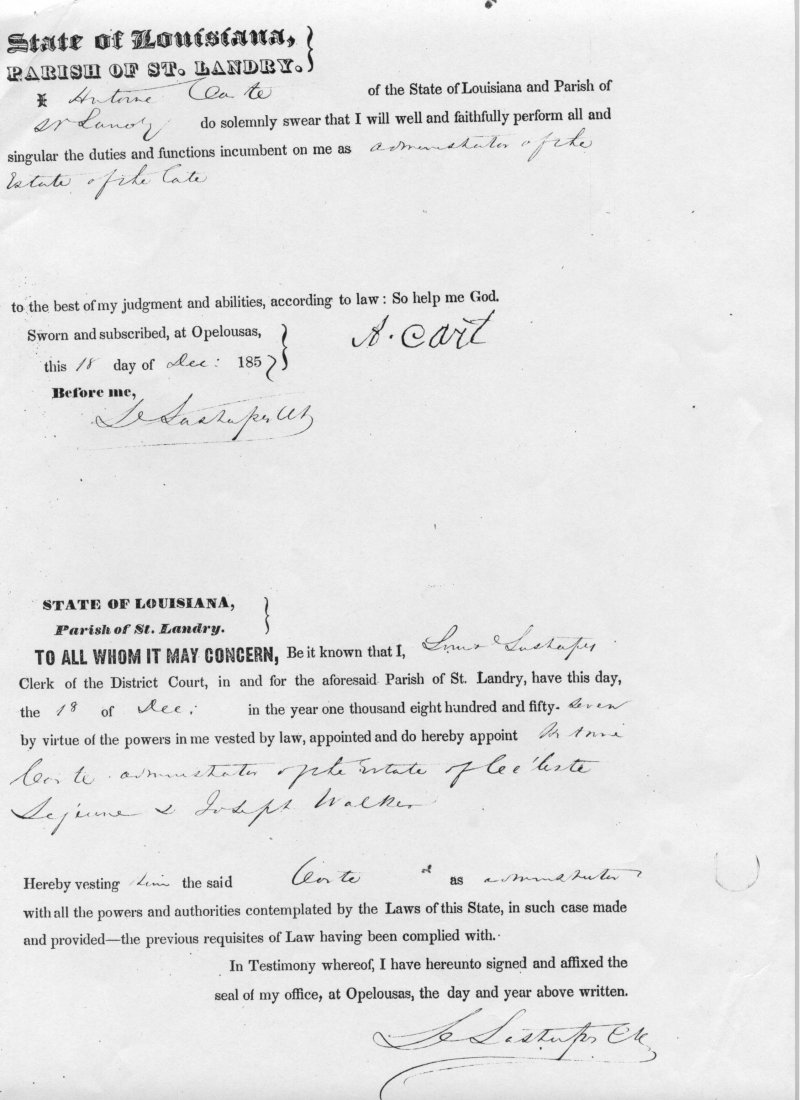 State of Louisiana,
PARISH OF ST. LANDRY.
I Antoine Carte of the State of Louisiana and Parish of
St Landry do solemnly swear that I will well and faithfully perform all and
singular the duties and functions incumbent on me as administrator of the
Estate of the late
to the best of my judgment and abilities, according to law : So help me God.
Sworn and subscribed, at Opelousas,
A. Cart
this 18 day of Dec: 1857
Before me,
STATE OF LOUISIANA,
Parish of St. Landry.
TO ALL WHOM IT MAY CONCERN, Be it known that I,
Clerk of the District Court, in and for the aforesaid Parish of St. Landry, have this day,
the 18 of Dec: in the year one thousand eight hundred and fifty- seven
by virtue of the powers in me vested by law, appointed and do hereby appoint Antoine
Carte administrator of the Estate of Celeste
Lejeune & Joseph Walker
Hereby vesting him the said Carte as administrator
with all the powers and authorities contemplated by the Laws of this State, in such case made
and provided—the previous requisites of Law having been complied with.
In Testimony whereof, I have hereunto signed and affixed the
seal of my office, at Opelousas, the day and year above written.